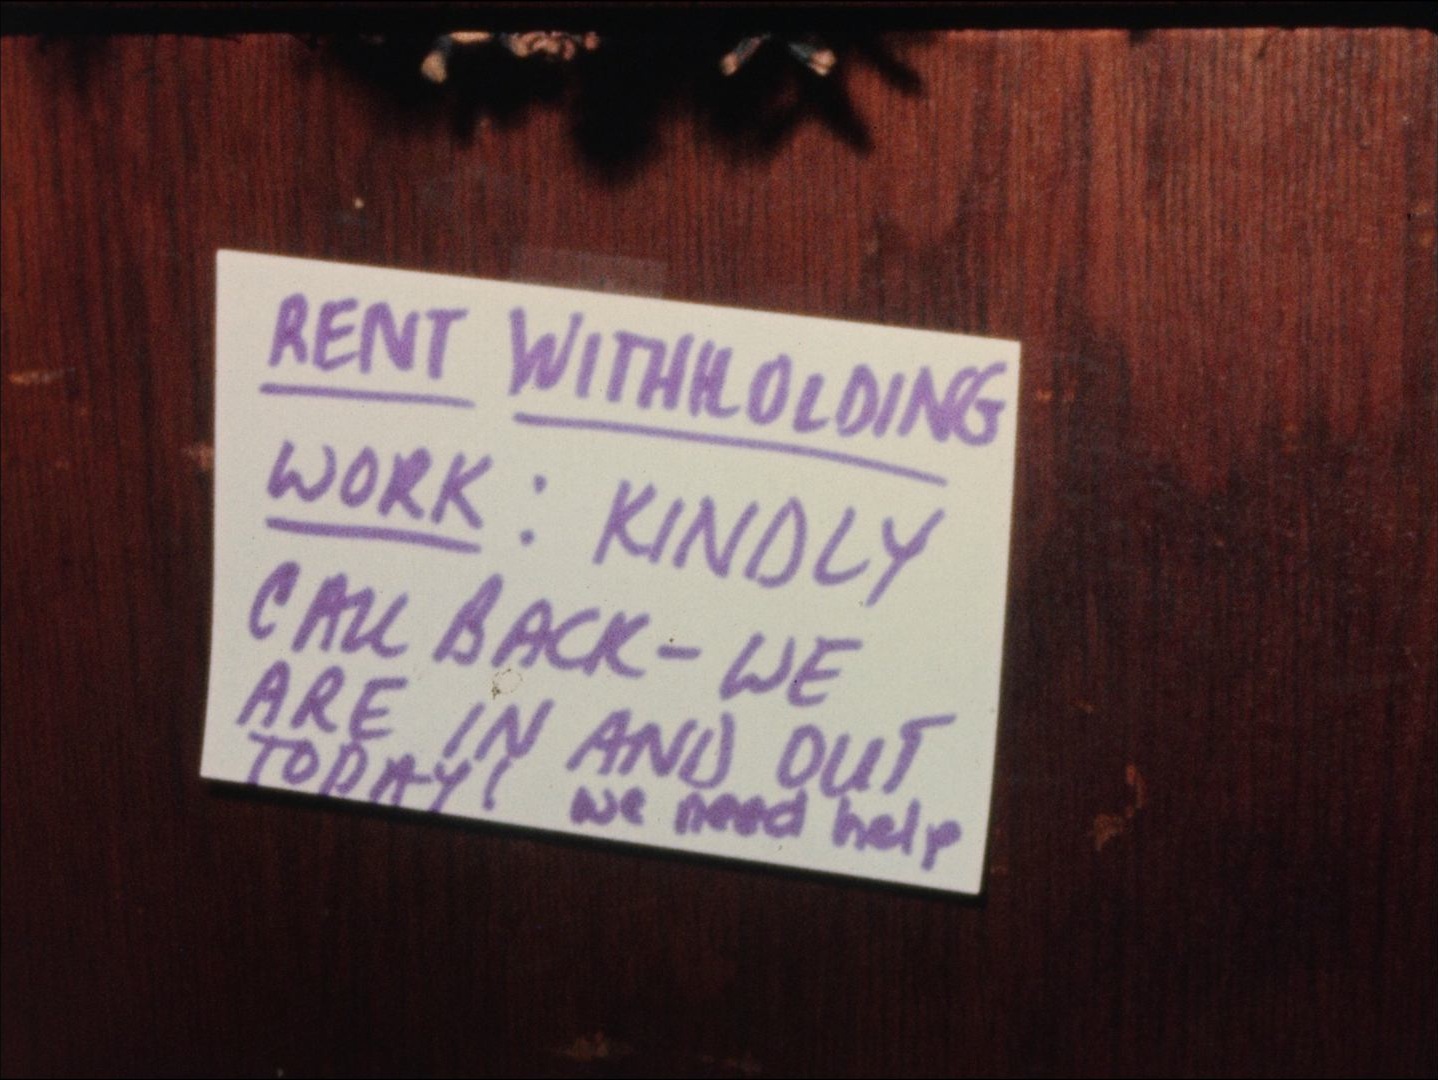 RENT WITHHOLDING
WORK: KINDLY
CALL BACK - WE
ARE IN AND OUT
TODAY! we need help